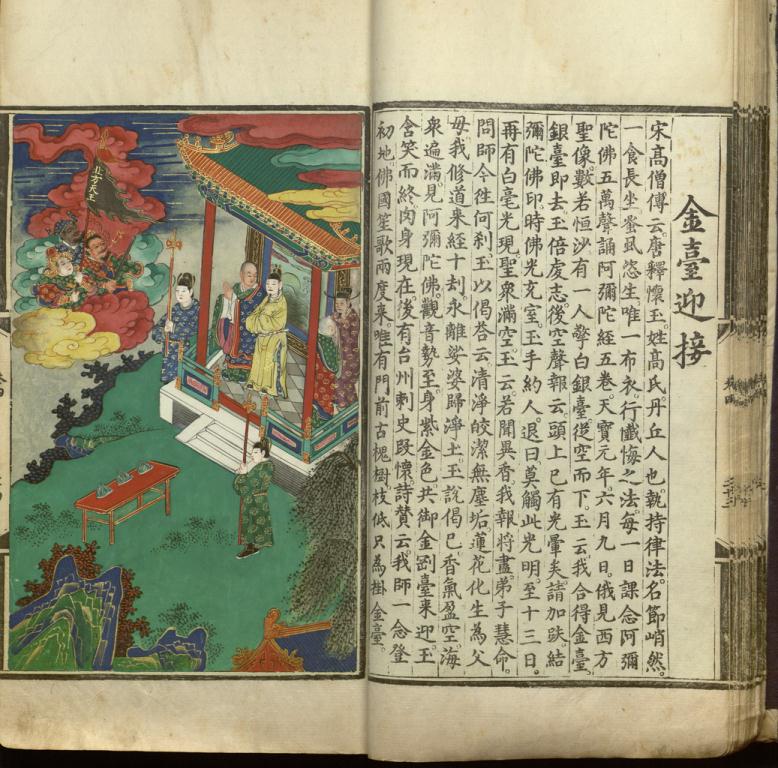 金臺迎接
宋髙僧傳云。唐釋懷玉。姓髙氏。丹丘人也。執持律法。名節峭然。
一食長坐。蚤虱恣生。唯一布衣。行懺悔之法。每一日課念阿彌
陀佛五萬聲。誦阿彌陀經五卷。天寶元年。六月九日。俄見西方
聖像。數若恒沙。有一人擎白銀臺。從空而下。玉云。我合得金臺。
銀臺即去。玉倍䖍志。後空聲報云。頭上已有光暈矣。請加趺。結
彌陀佛印。時佛光充室。玉手約人退曰。莫觸此光明。至十三日。
再有白毫光現。聖衆滿空。玉云。若聞異香。我報將盡。弟子慧命。
問師今徃何刹。玉以偈荅云。清淨皎潔無塵垢。蓮花化生為父
母。我修道来經十刦。永離娑婆歸淨土。玉說偈已。香氣盈空。海
衆遍滿。見阿彌陀佛。觀音勢至。身紫金色。共御金剛臺来迎。玉
含笑而終。肉身現在。後有台州刺史段懷。詩賛云。我師一念登
初地。佛國笙歌兩度来。唯有門前古槐樹。枝低只為掛金臺。
北方天王